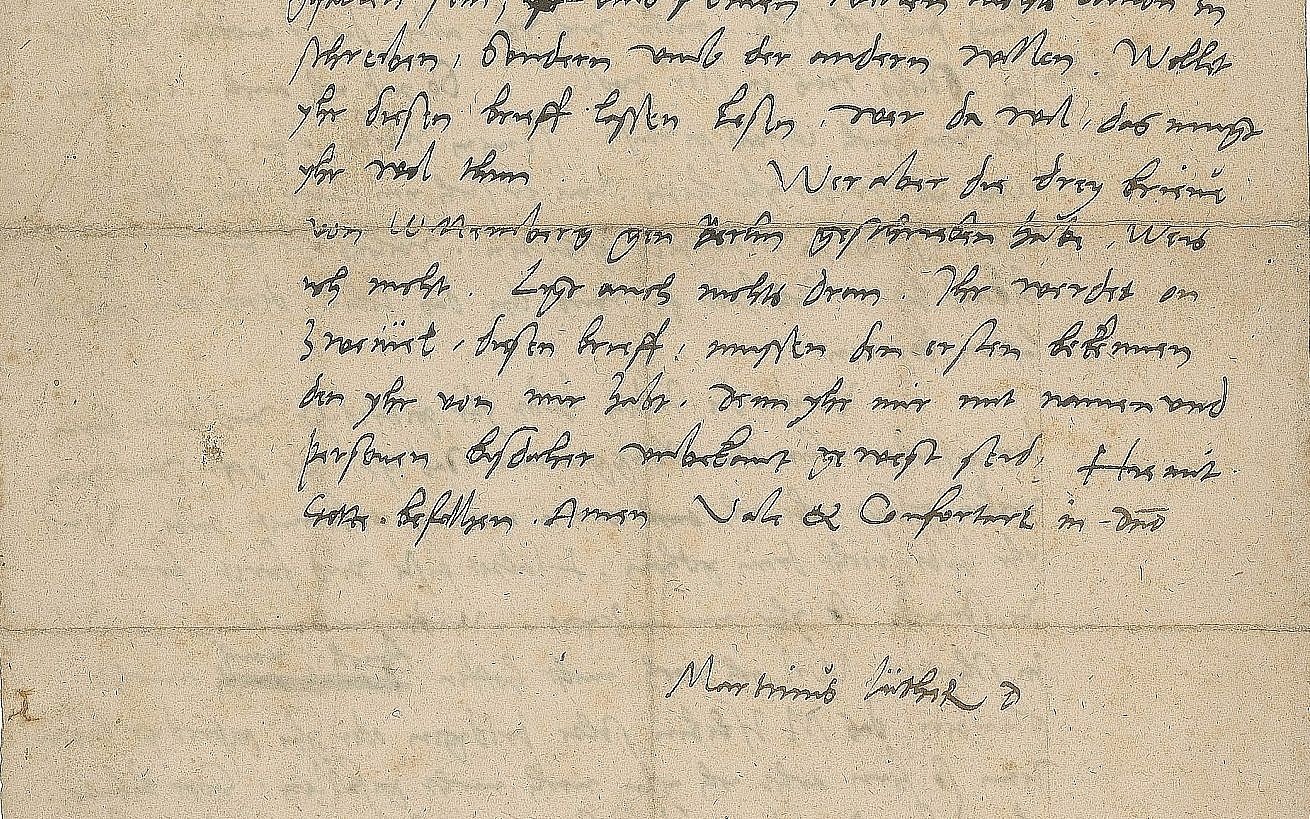 schreiben, Sondern umb der andern willen. Wollet
yhr diesen brieff lassen lesen, wer da wil, das muget
yhr wol thun Wer aber die drey brieue
von Wittemberg gen Berlin geschrieben habe, Weis
ich nicht. Ligt auch nichts dran. Ihr werdet on
zweiuel, diesen brieff, mussen den ersten bekennen
den yhr von mir habt, Denn yhr mir mit namen und
personen bisdaher unbekant gewest seid, Hiemit
Gotte befolhen. Amen Vale & Confortare in dno
Martinus Luther D